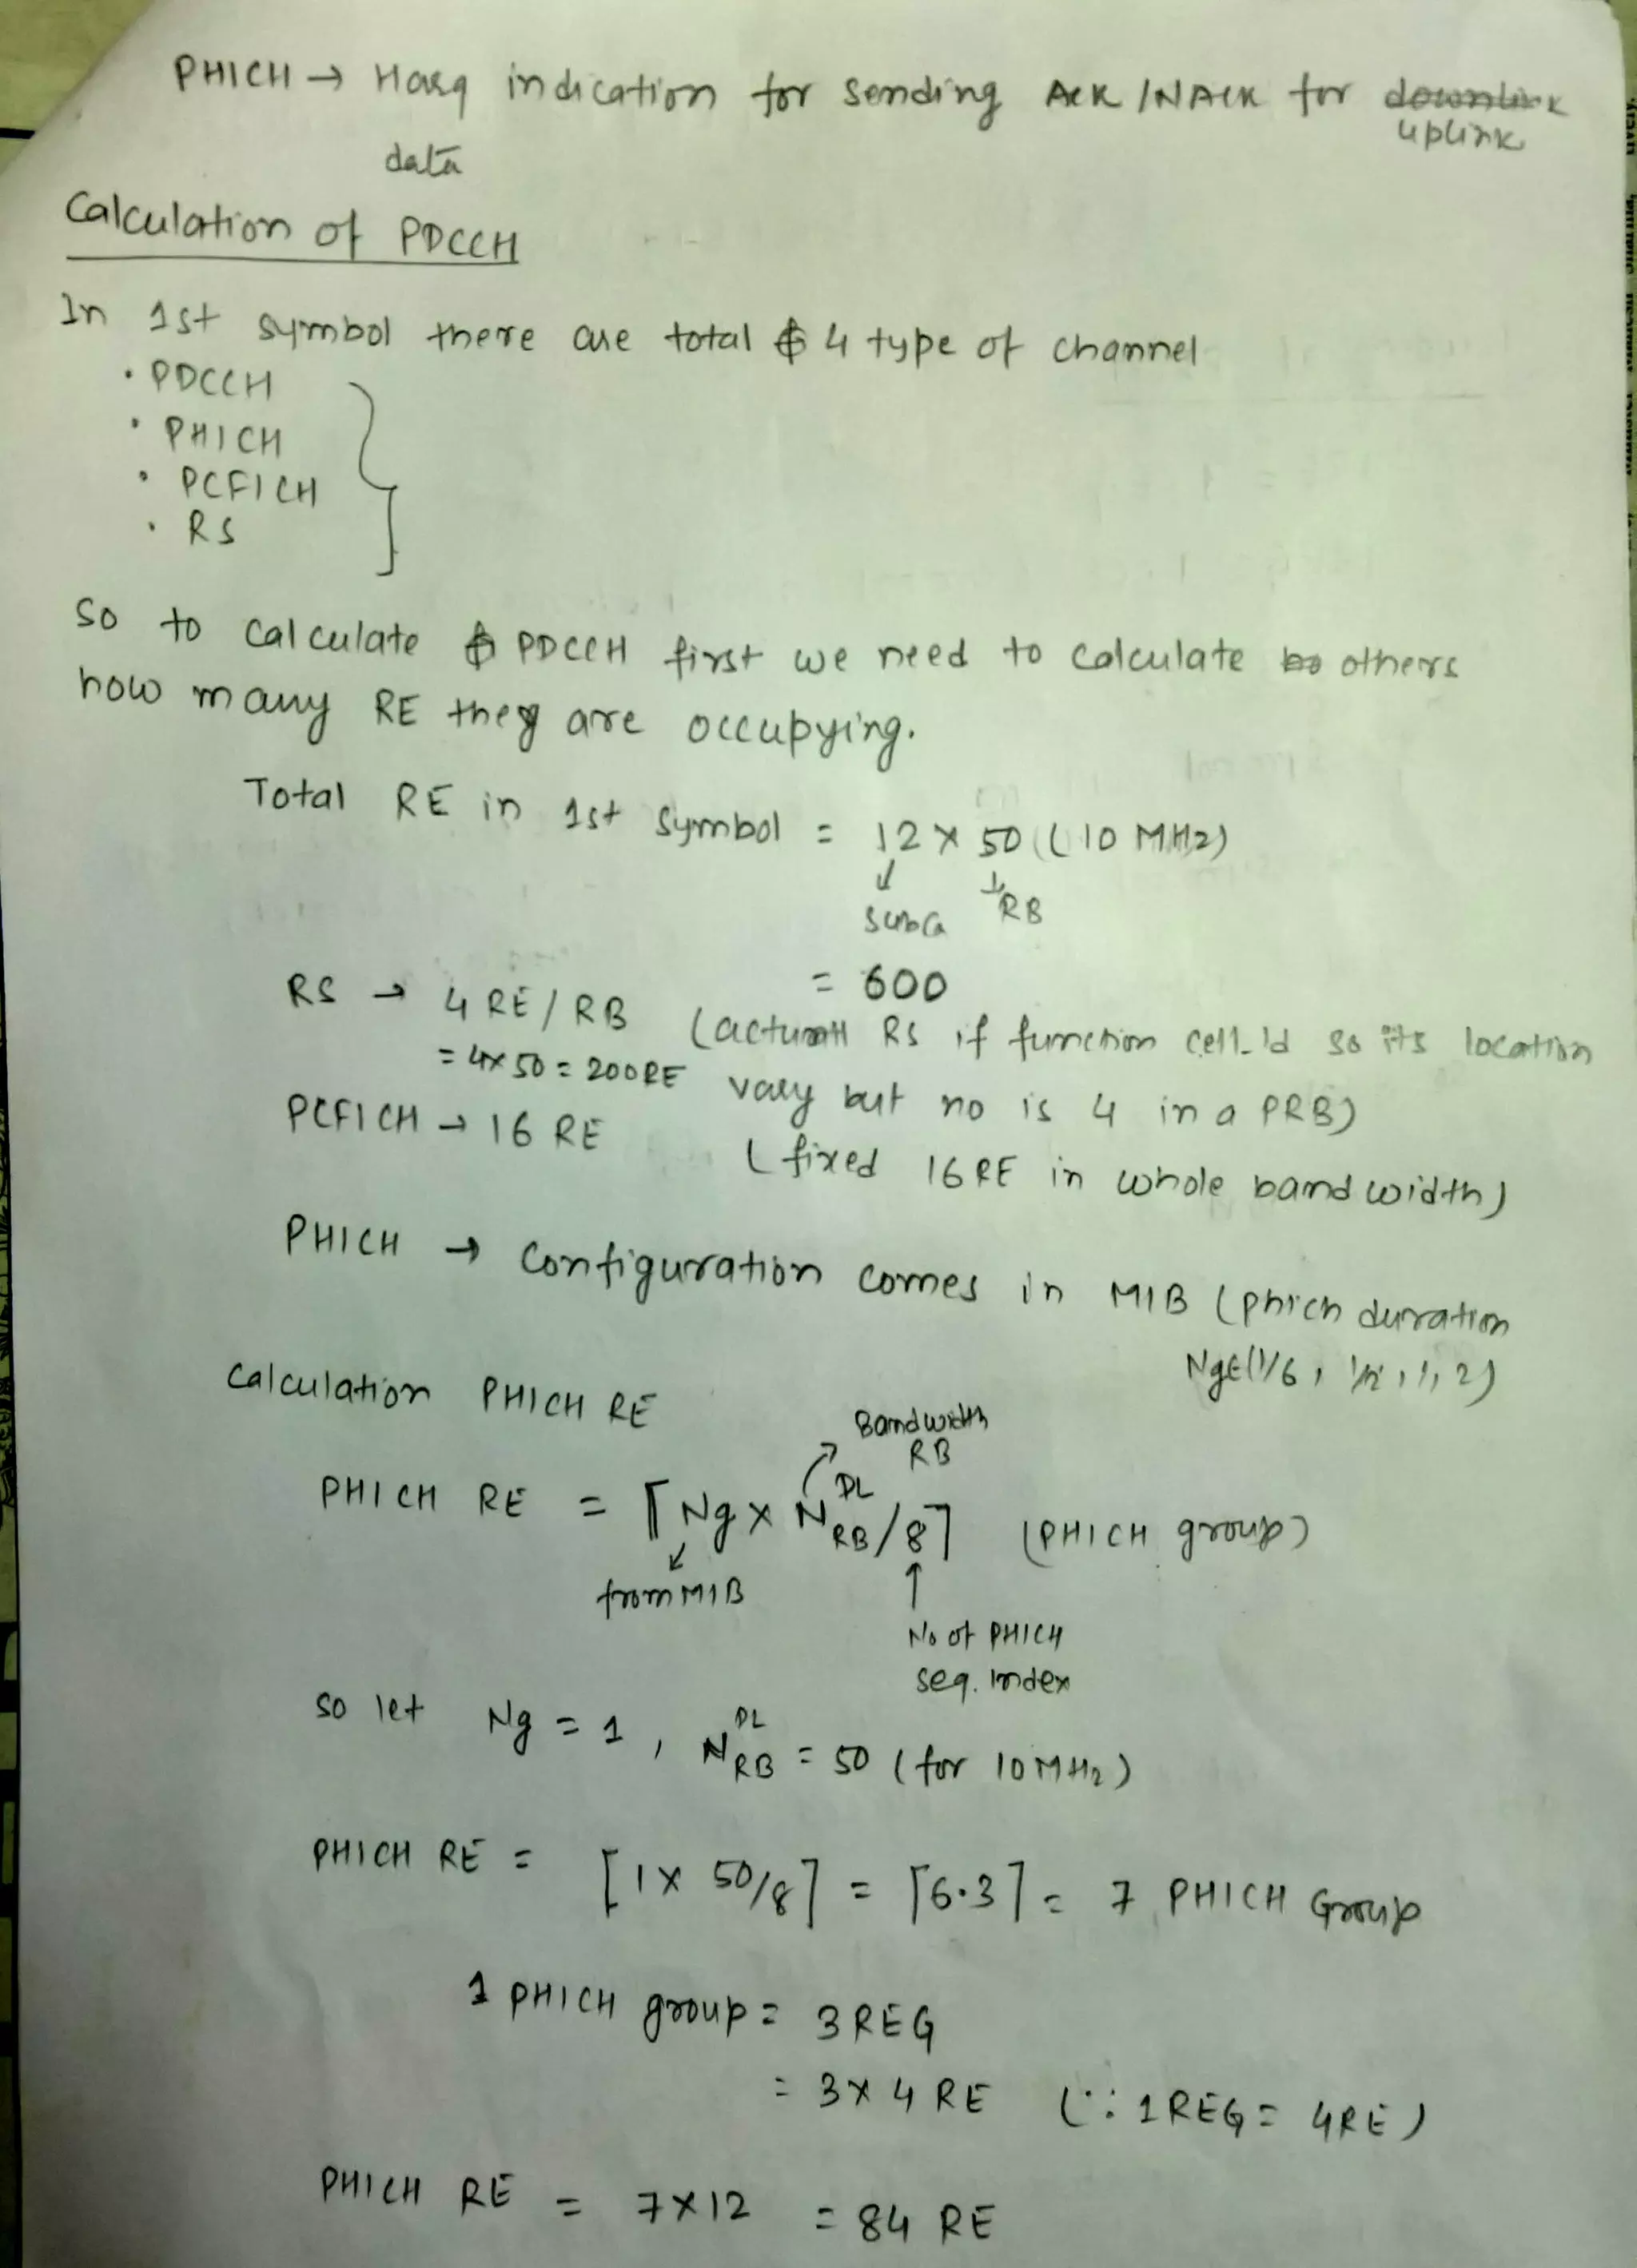 PHICH → Harq indication for sending ACK/NACK for downlink
uplink
data
Calculation of PDCCH
In 1st symbol there are total 4 type of channel
· PDCCH
· PHICH
· PCFICH
· RS
So to calculate PDCCH first we need to calculate others
how many RE they are occupying.
Total RE in 1st symbol = 12 × 50 (10 MHz)
↓ ↓
SubCa RB
= 600
RS → 4 RE/RB (actuall RS if function cell-Id so its location
= 4×50 = 200RE vary but no is 4 in a PRB)
PCFICH → 16 RE (fixed 16RE in whole bandwidth)
PHICH → Configuration comes in MIB (phich duration
Ng∈(1/6, 1/2, 1, 2)
Calculation PHICH RE
Bandwidth
RB
PHICH RE = ⌈Ng × N_RB^DL/8⌉ (PHICH group)
from MIB
No of PHICH
seq. Index
so let Ng = 1, N_RB^DL = 50 (for 10MHz)
PHICH RE = ⌈1 × 50/8⌉ = ⌈6.3⌉ = 7 PHICH Group
1 PHICH group = 3REG
= 3×4 RE (∵ 1REG = 4RE)
PHICH RE = 7×12 = 84 RE